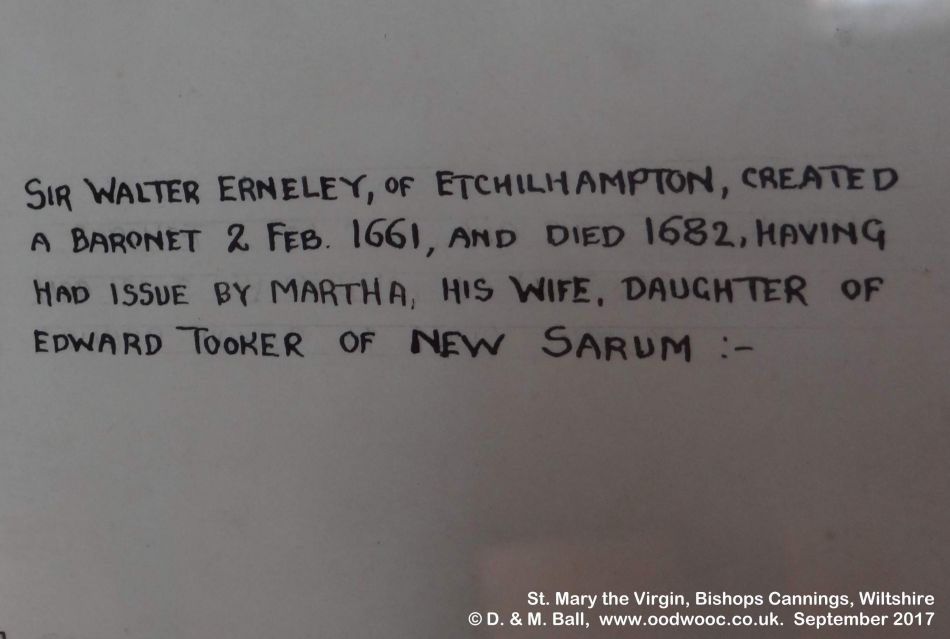 SIR WALTER ERNELEY, OF ETCHILHAMPTON, CREATED
A BARONET 2 FEB. 1661, AND DIED 1682, HAVING
HAD ISSUE BY MARTHA, HIS WIFE, DAUGHTER OF
EDWARD TOOKER OF NEW SARUM :-
St. Mary the Virgin, Bishops Cannings, Wiltshire
© D. & M. Ball, www.oodwooc.co.uk. September 2017